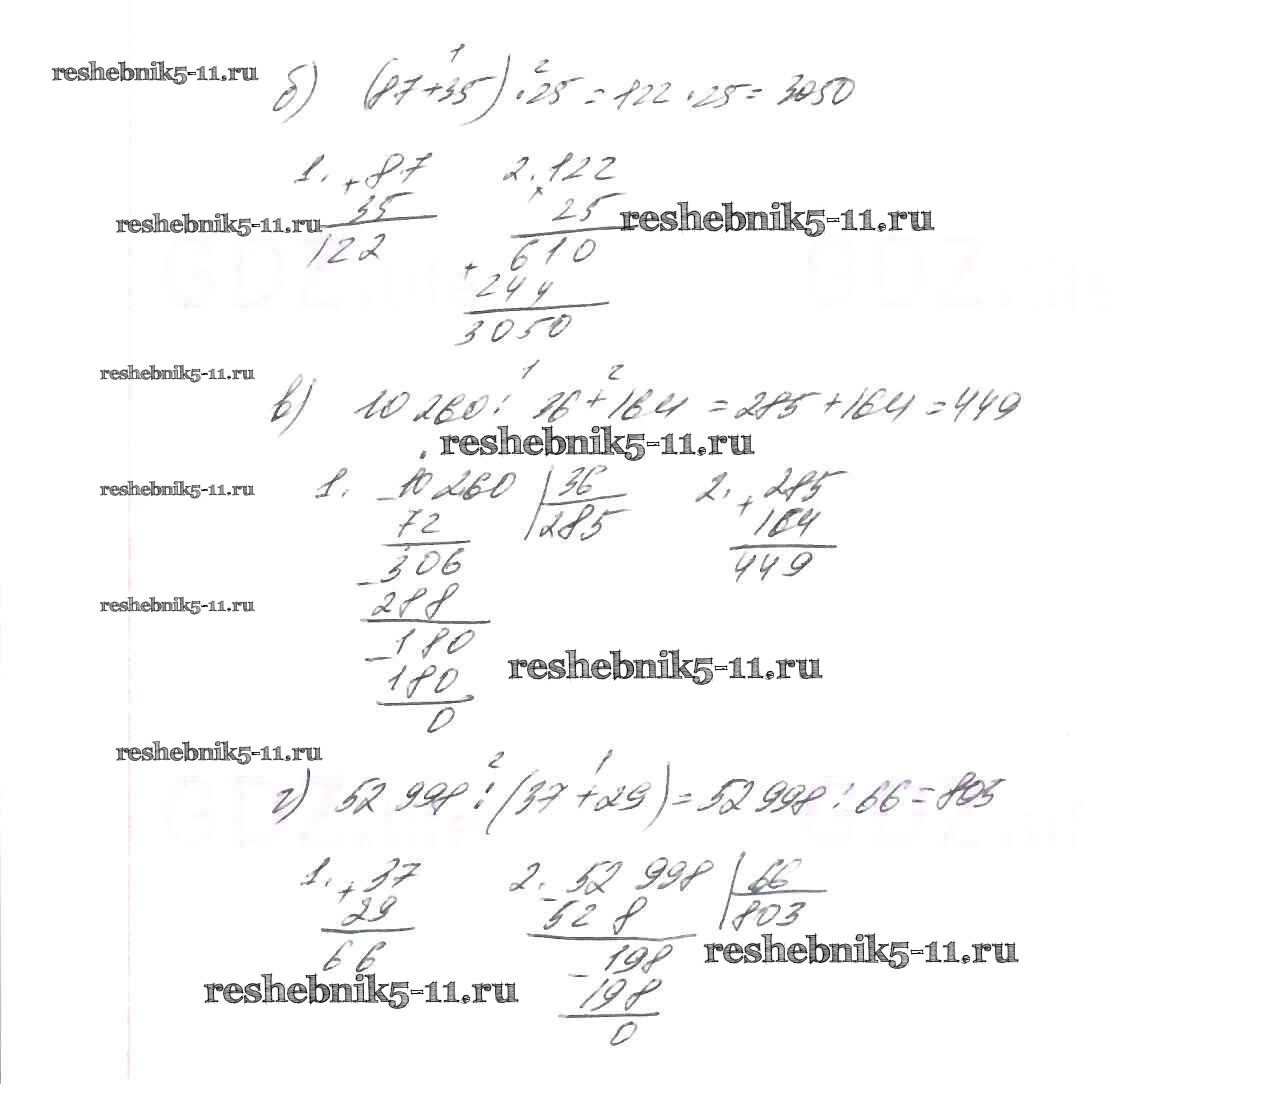 reshebnik5-11.ru
б) (87+35) · 25 = 122 · 25 = 3050
1 2
1. + 87 2. × 122
35 25
reshebnik5-11.ru reshebnik5-11.ru
122 + 610
244
3050
reshebnik5-11.ru
1 2
в) 10 260 : 36 + 164 = 285 + 164 = 449
reshebnik5-11.ru
reshebnik5-11.ru
1. - 10 260 | 36 2. + 285
72 285 164
- 306 449
reshebnik5-11.ru
288
- 180
reshebnik5-11.ru
180
0
reshebnik5-11.ru
2 1
г) 52 998 : (37 + 29) = 52 998 : 66 = 803
GDZ.me GDZ.me
1. + 37 2. - 52 998 | 66
29 528 803
66 - 198
reshebnik5-11.ru
reshebnik5-11.ru
198
0